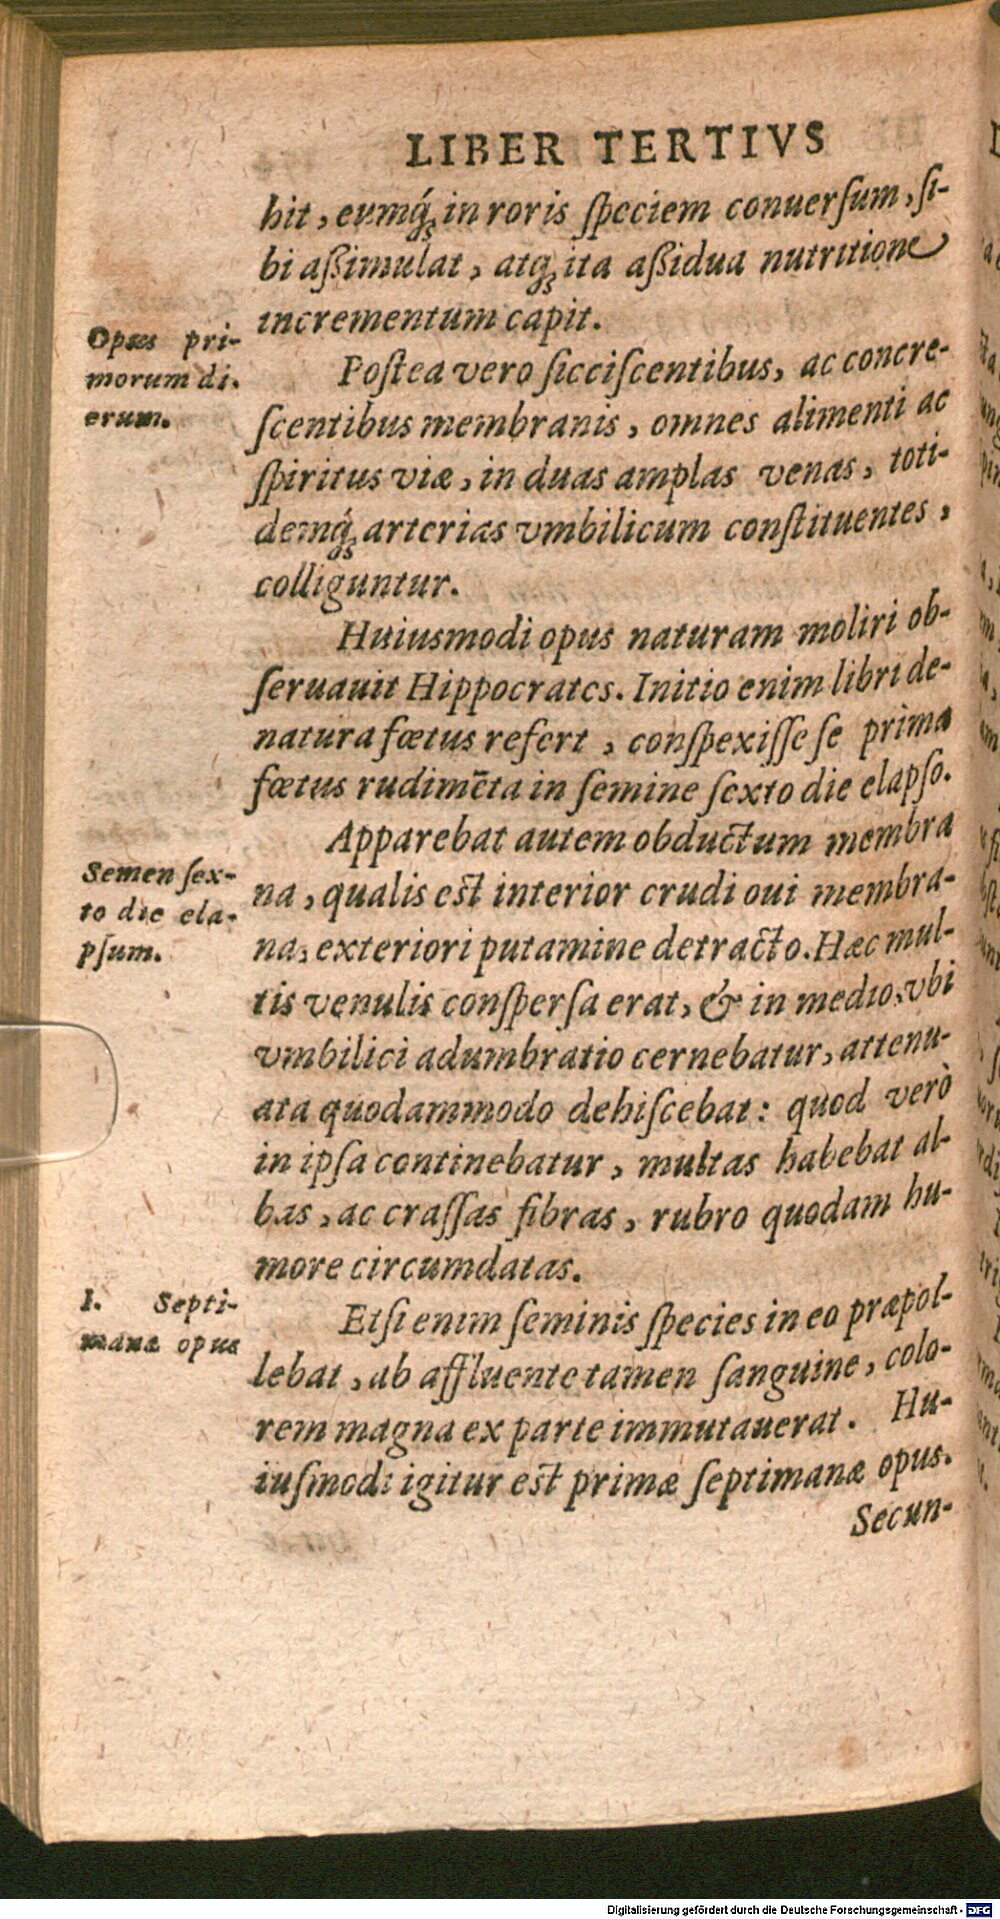 LIBER TERTIVS
hit, eumq́ꝫ in roris ſpeciem conuerſum, ſi-
bi aßimulat, atqꝫ ita aßidua nutritione
incrementum capit.
Opus pri-
morum di-
erum.
Poſtea vero ſicciſcentibus, ac concre-
ſcentibus membranis, omnes alimenti ac
ſpiritus viæ, in duas amplas venas, toti-
demq́ꝫ arterias vmbilicum conſtituentes,
colliguntur.
Huiusmodi opus naturam moliri ob-
ſeruauit Hippocrates. Initio enim libri de-
natura fœtus refert, conſpexiſſe ſe prima
fœtus rudimēta in ſemine ſexto die elapſo.
Apparebat autem obductum membra
Semen ſex-
to die ela-
pſum.
na, qualis est interior crudi oui membra-
na, exteriori putamine detracto. Hæc mul-
tis venulis conſperſa erat, & in medio, vbi
vmbilici adumbratio cernebatur, attenu-
ata quodammodo dehiſcebat: quod verò
in ipſa continebatur, multas habebat al-
bas, ac craſſas fibras, rubro quodam hu-
more circumdatas.
I. Septi-
manæ opus
Etſi enim ſeminis ſpecies in eo præpol-
lebat, ab affluente tamen ſanguine, colo-
rem magna ex parte immutauerat. Hu-
iuſmodi igitur est primæ ſeptimanæ opus.
Secun-
Digitalisierung gefördert durch die Deutsche Forschungsgemeinschaft - DFG